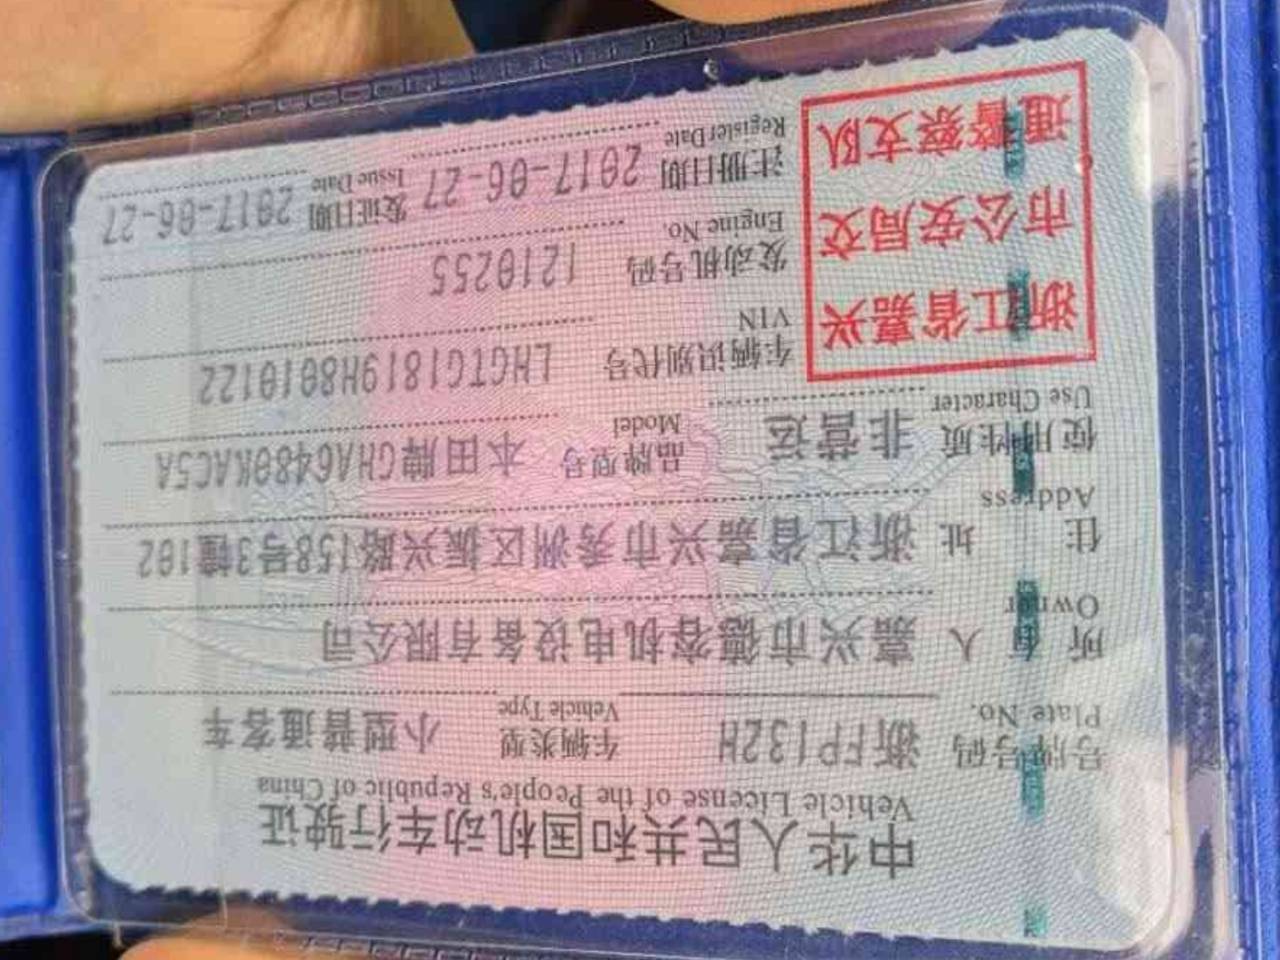 中华人民共和国机动车行驶证
Vehicle License of the People's Republic of China
号牌号码 浙FP132H 车辆类型 小型普通客车
Plate No. Vehicle Type
所有人 嘉兴市德客机电设备有限公司
Owner
住址 浙江省嘉兴市秀洲区振兴路158号3幢102
Address
使用性质 非营运 品牌型号 本田牌GHA6480KAC5A
Use Character Model
浙江省嘉兴
市公安局交
通警察支队
车辆识别代号 LHGTG1819H8010122
VIN
发动机号码 1210255
Engine No.
注册日期 2017-06-27 发证日期 2017-06-27
Register Date Issue Date